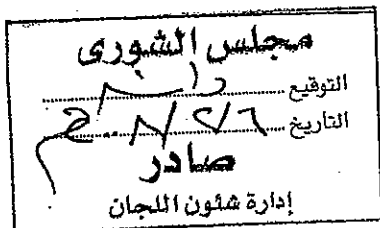 مجلس الشورى
التوقيع
التاريخ ٨/٢/٦
صادر
إدارة شئون اللجان